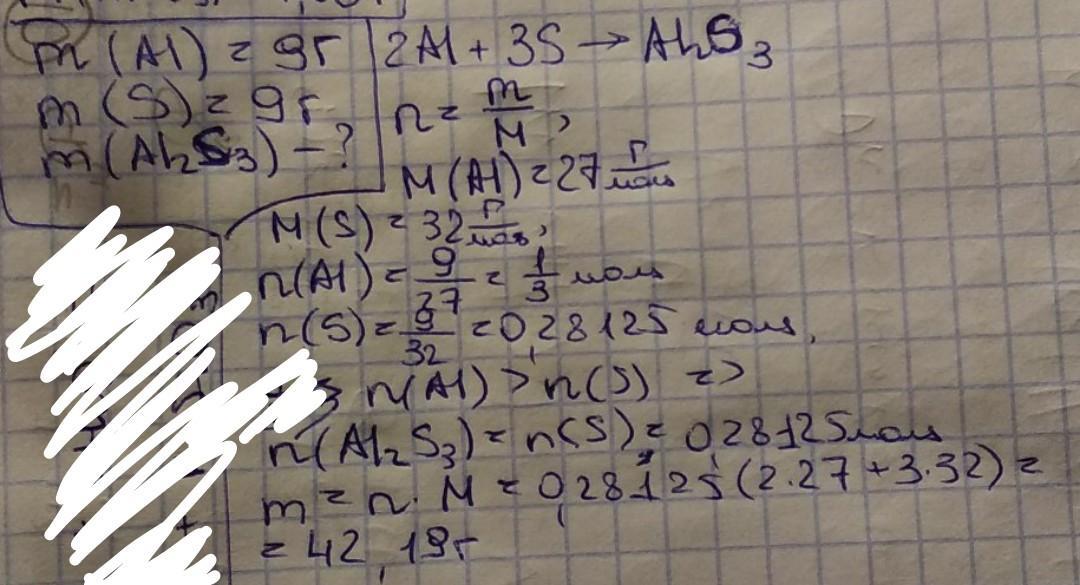 m (Al) = 9г
m (S) = 9г
m (Al₂S₃) - ?
2Al + 3S → Al₂S₃
n = m/M,
M (Al) = 27 г/моль
M (S) = 32 г/моль,
n(Al) = 9/27 = 1/3 моль
n(S) = 9/32 = 0,28125 моль,
n(Al) > n(S) =>
n(Al₂S₃) = n(S) = 0,28125 моль
m = n · M = 0,28125 (2·27 + 3·32) =
= 42,19г